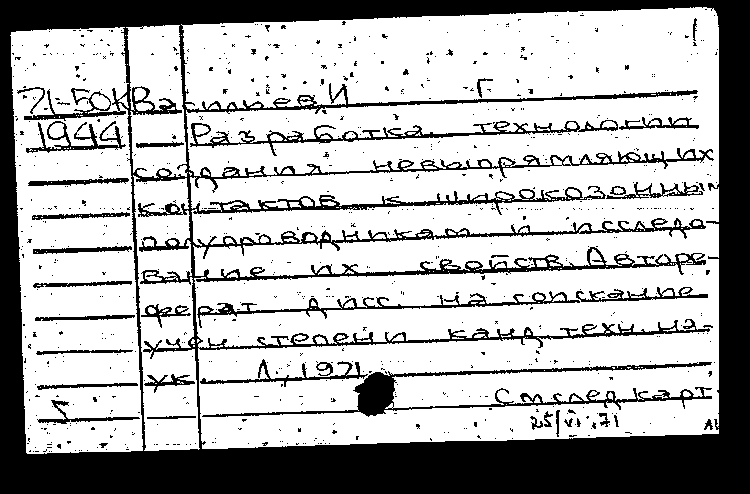 1
71-50К Васильев, И Г
1944 Разработка технологии
создания невыпрямляющих
контактов к широкозонным
полупроводникам и исследо-
вание их свойств. Авторе-
ферат дисс. на соискание
учен степени канд техн на-
ук. Л., 1971
См след карт
25/VI.71